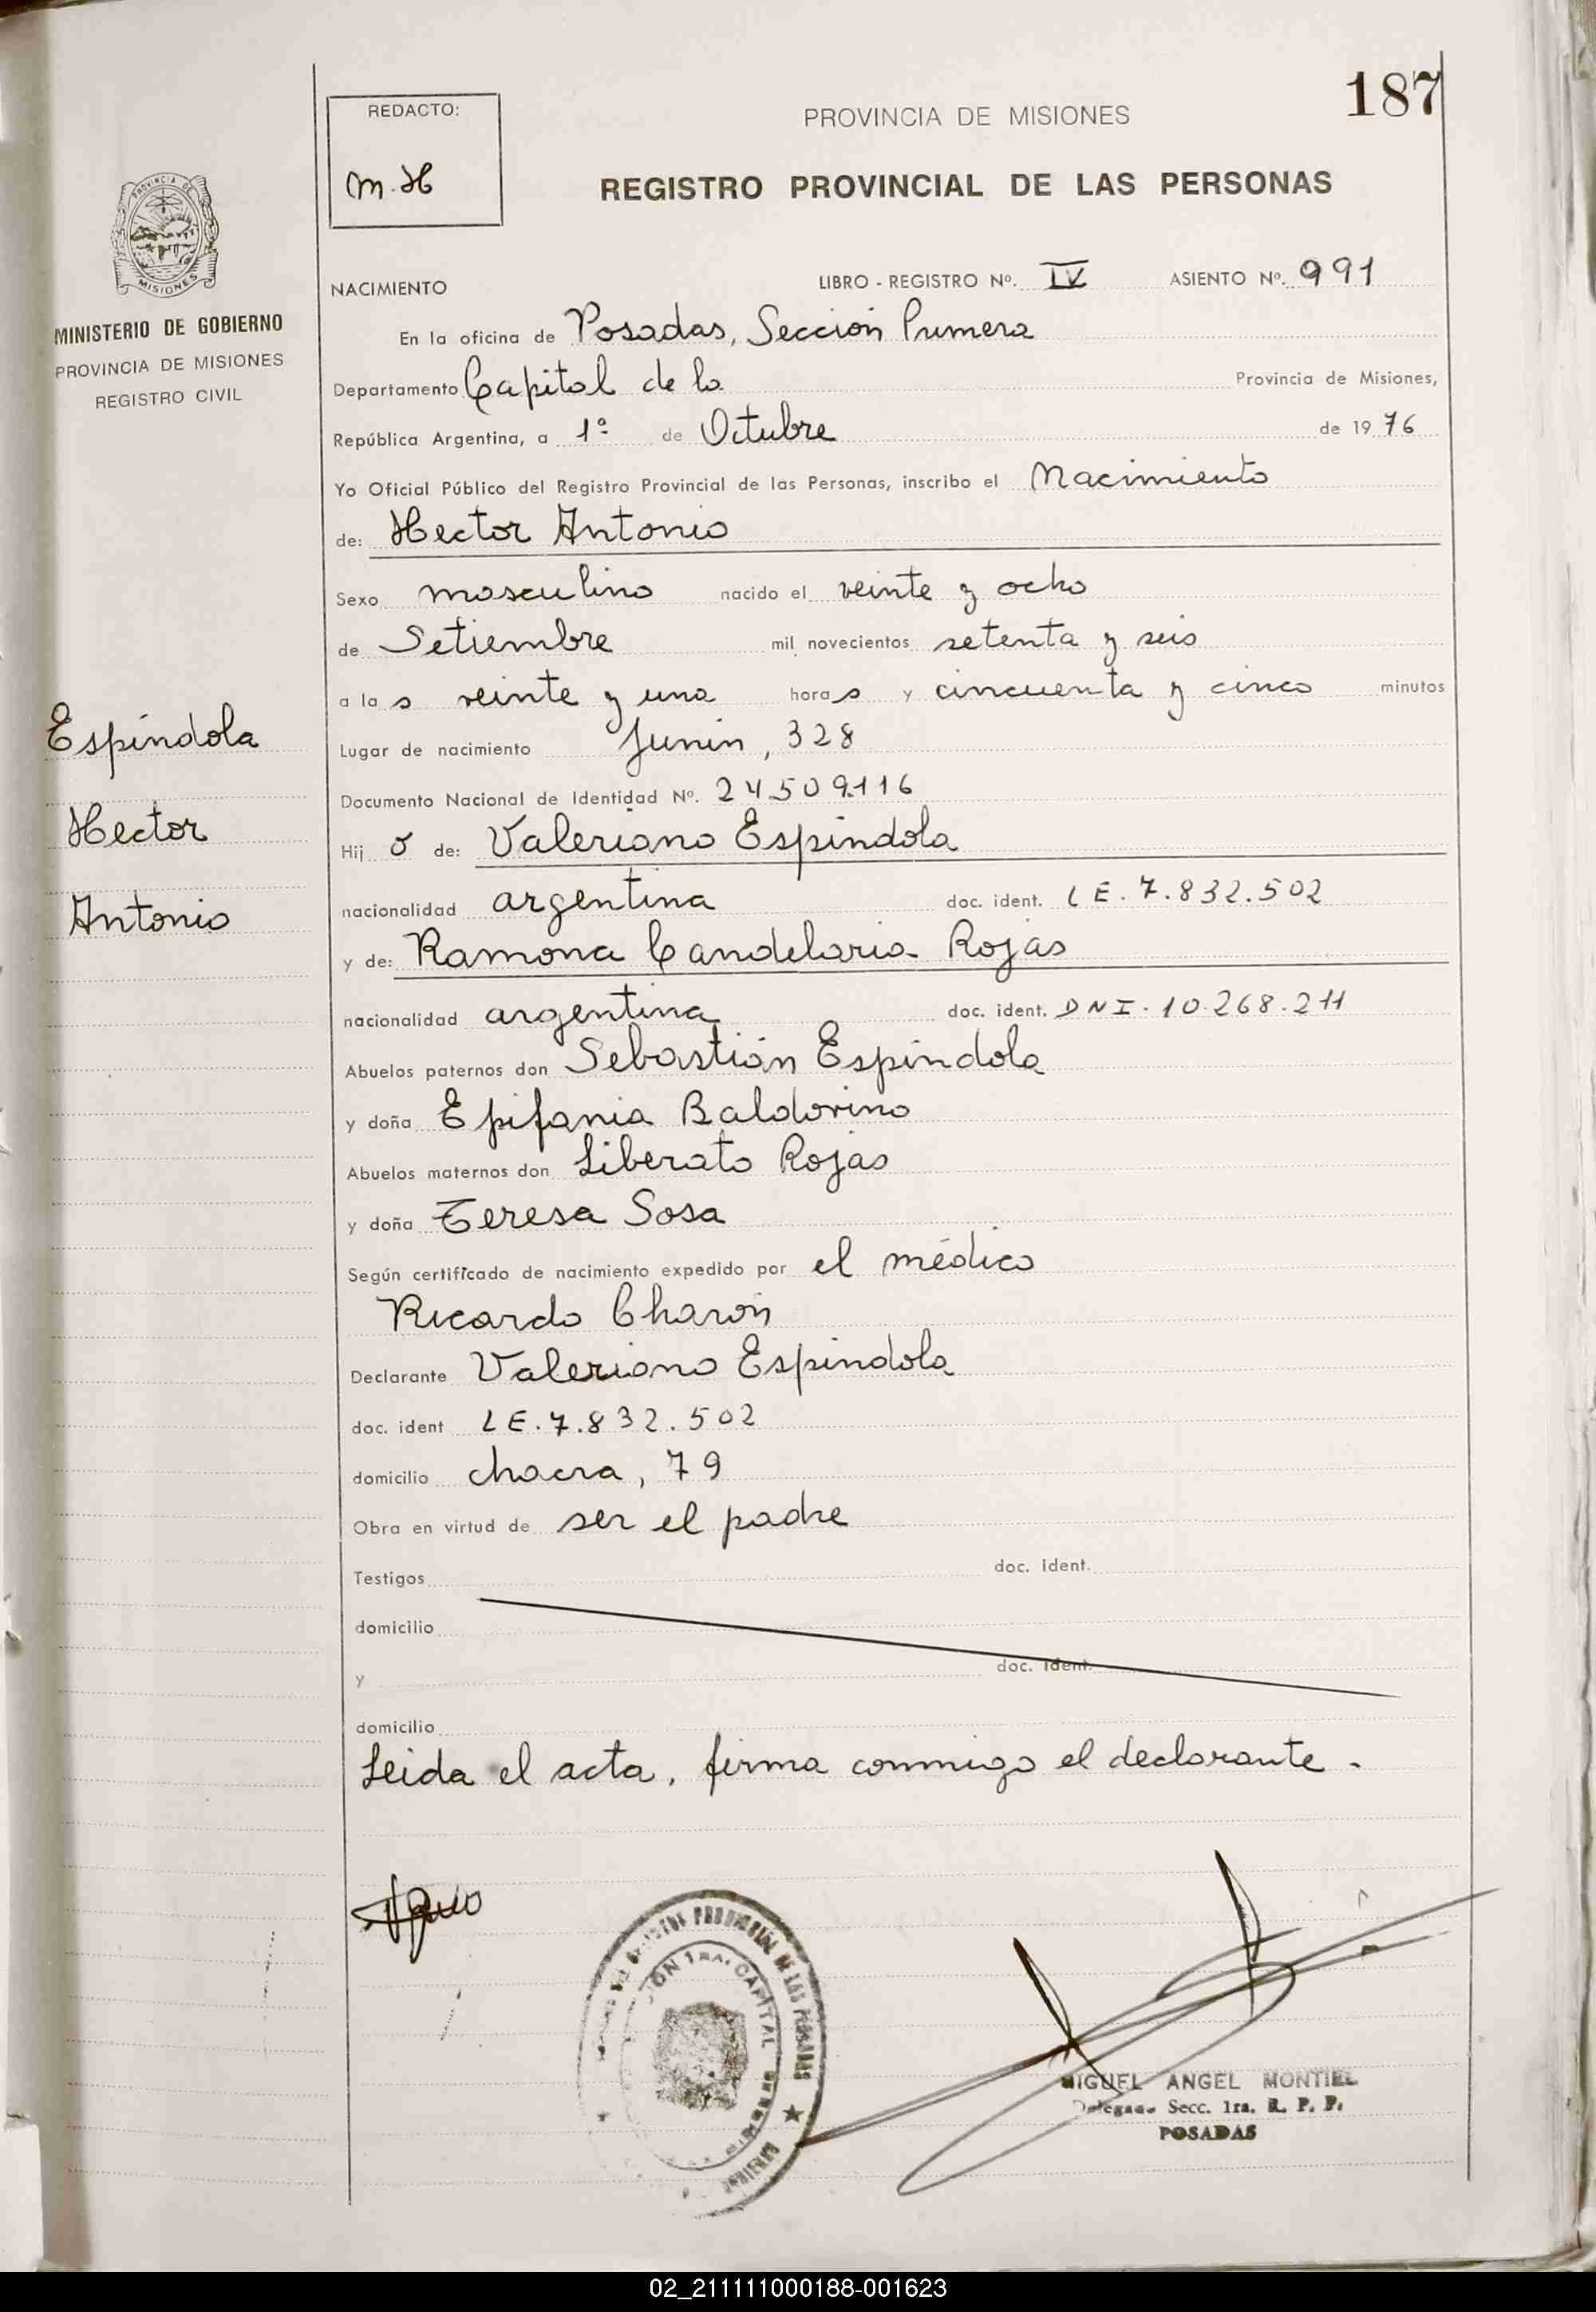 187
REDACTO:
M.H
PROVINCIA DE MISIONES
REGISTRO PROVINCIAL DE LAS PERSONAS
PROVINCIA DE
MISIONES
MINISTERIO DE GOBIERNO
PROVINCIA DE MISIONES
REGISTRO CIVIL
Espíndola
Hector
Antonio
NACIMIENTO LIBRO - REGISTRO Nº. IV ASIENTO Nº. 991
En la oficina de Posadas, Sección Primera
Departamento Capital de la Provincia de Misiones,
República Argentina, a 1º de Octubre de 1976
Yo Oficial Público del Registro Provincial de las Personas, inscribo el Nacimiento
de: Hector Antonio
Sexo masculino nacido el veinte y ocho
de Setiembre mil novecientos setenta y seis
a las veinte y una horas y cincuenta y cinco minutos
Lugar de nacimiento Junín, 328
Documento Nacional de Identidad Nº. 24.509.116
Hijo de: Valeriano Espíndola
nacionalidad argentina doc. ident. LE. 7.832.502
y de: Ramona Candelaria Rojas
nacionalidad argentina doc. ident. DNI. 10.268.211
Abuelos paternos don Sebastián Espíndola
y doña Epifania Baldovino
Abuelos maternos don Liberato Rojas
y doña Teresa Sosa
Según certificado de nacimiento expedido por el médico
Ricardo Charón
Declarante Valeriano Espíndola
doc. ident LE. 7.832.502
domicilio chacra, 79
Obra en virtud de ser el padre
Testigos doc. ident.
domicilio
y doc. ident.
domicilio
Leida el acta, firma conmigo el declarante.
PROVINCIAL DE LAS PERSONAS
1ra. CAPITAL
MIGUEL ANGEL MONTIEL
Delegado Secc. 1ra. R. P. P.
POSADAS
02_211111000188-001623